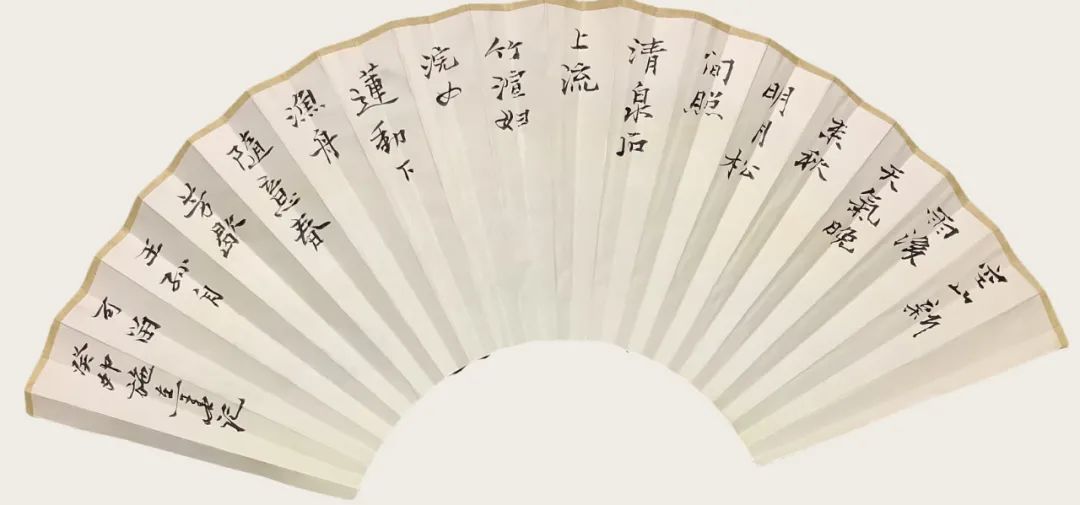 空山新
雨後
天氣晚
來秋
明月松
间照
清泉石
上流
竹渲归
浣女
蓮動下
漁舟
隨意春
芳歇
王孙自
可留
癸卯施